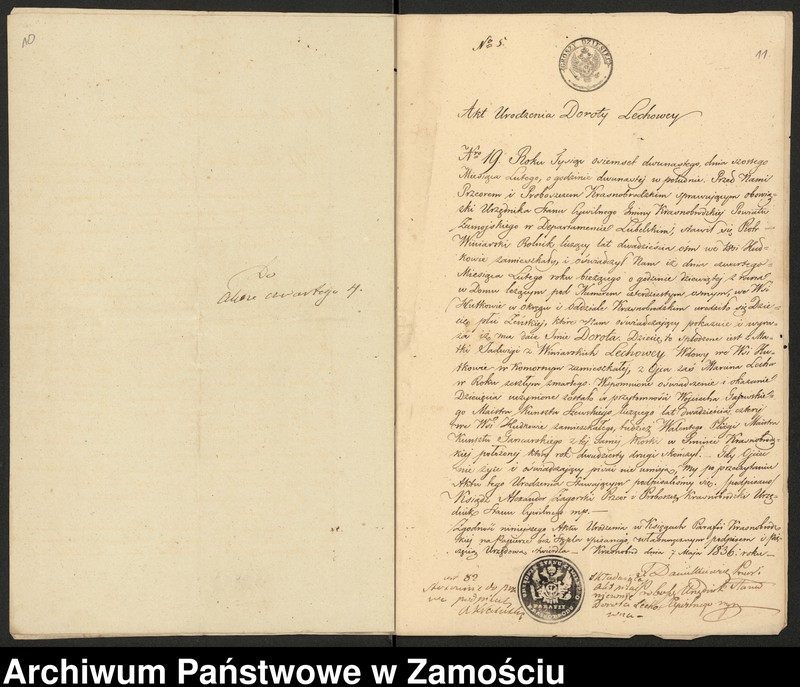 10
Do
aktu czwartego 4.
Nro 5.
GROSZY DZIESIĘĆ
11
Akt Urodzenia Doroty Lechowcy
Nro 19. Roku Tysiąc osiemset dwunastego, dnia szostego
Miesiąca Lutego, o godzinie dwunastej w południe. Przed Nami
Przeorem i Proboszczem Krasnobrodzkim sprawującym obowią-
zki Urzędnika Stanu Cywilnego Gminy Krasnobrodzkiej Powiatu
Zamojskiego w Departamencie Lubelskim, stawił się Piotr
Winiarski Rolnik liczący lat dwadzieścia ośm we Wsi Hut-
kowie zamieszkały, i oświadczył Nam iż dnia czwartego
Miesiąca Lutego roku bieżącego o godzinie dziewiątej z rana
w Domu leżącym pod Numerem czterdziestym ósmym, we Wsi
Hutkowie w okręgu i oddziale Krasnobrodzkim urodziło się Dzie-
cię płci Żeńskiej, które Nam oświadczający pokazuie i wyra-
ża iż ma daie Imie Dorota. Dziecię to spłodzone iest z Ma-
tki Jadwigi z Winiarskich Lechowcy Wdowy we Wsi Hu-
tkowie w Komornym zamieszkałej, z Ojca zaś Marcina Lecha
w Roku zeszłym zmarłego. Wspomnione oświadczenie i okazanie
Dziecięcia uczynione zostało w przytomności Wojciecha
go Maistra Kunsztu Szewskiego liczącego lat dwadzieścia cztery
we Wsi Hutkowie zamieszkałego, tudzież Walentego Maistra
Kunsztu Garncarskiego z tej samej Wioski w Gminie Krasnobrodz-
kiej położonej który rok dwudziesty drugi skończył. Gdy Ojciec
nie żyie i oświadczający pisać nie umieją, My po przeczytaniu
Aktu tego Urodzenia Stawaiącym podpisaliśmy się. (podpisano)
Ksiądz Alexander Zagorski Przeor i Proboszcz Krasnobrodzki Urzę-
dnik Stanu Cywilnego mp.
Zgodność ninieyszego Aktu Urodzenia w Księgach Parafii Krasnobrodz-
kiej na Papierze bez Stępla spisanego, własnoręcznym podpisem i Pie-
częcią Urzędową stwierdza Krasnobród dnia 7 Maja 1836 roku
składająca
Akt
Dorota Lecho-
wna
Proboszcz Urzędnik Stanu
Cywilnego mp
Archiwum Państwowe w Zamościu